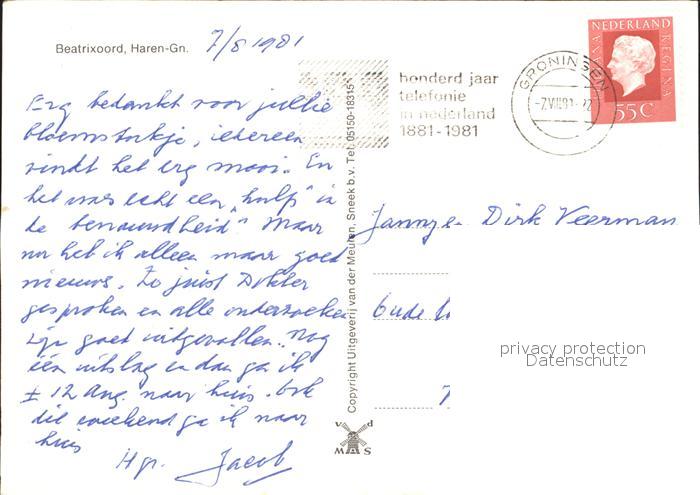 Beatrixoord, Haren-Gn.
7/8 1981
Erg bedankt voor jullie
bloemstukje, iedereen
vindt het erg mooi. En
het was echt een "hulp" in
de benauwdheid". Maar
nu heb ik alleen maar goed
nieuws. Zo juist Dokter
gesproken en alle onderzoeken
zijn goed uitgevallen. Nog
één uitslag en dan ga ik
± 12 aug. naar huis. Ook
dit weekend ga ik naar
huis
Hgr. Jacob
Copyright Uitgeverij van der Meulen, Sneek b.v. Tel. 05150-18315*
v d
M S
honderd jaar
telefonie
in nederland
1881-1981
GRONINGEN
NEDERLAND
JULIANA REGINA
55c
Janny en Dirk Veerman
Oude
7
privacy protection
Datenschutz